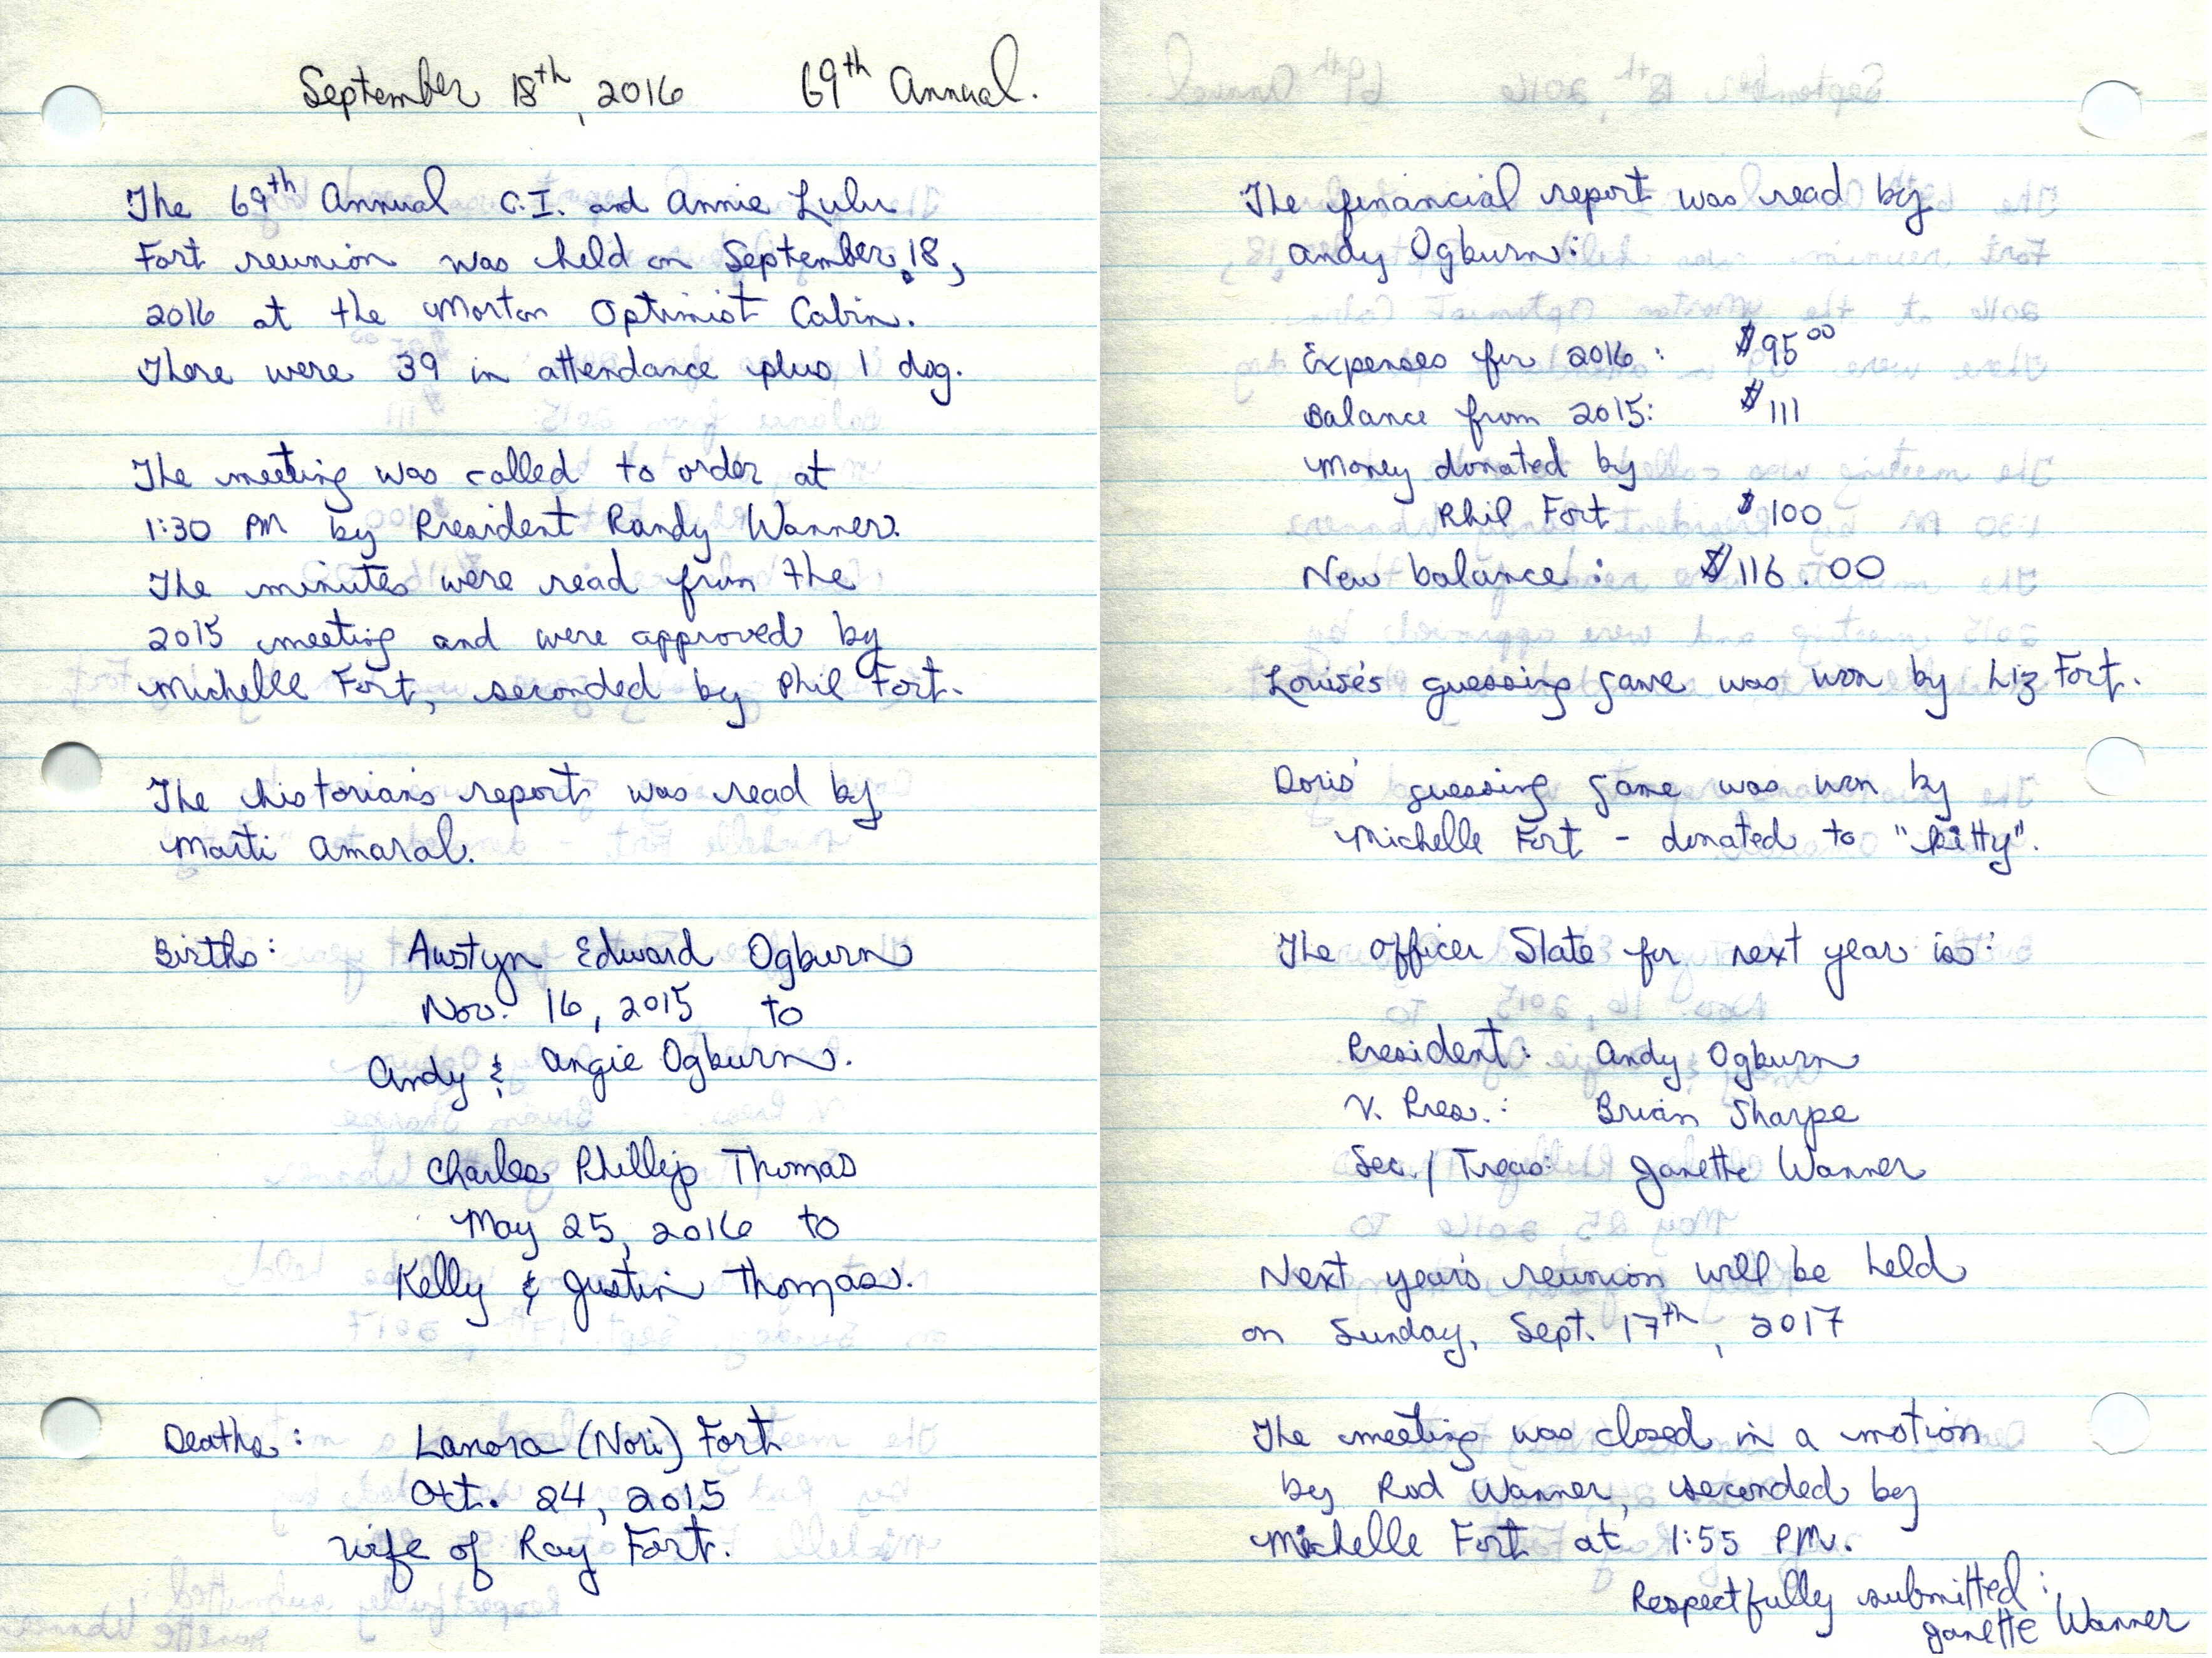 September 18th, 2016 69th Annual.
The 69th Annual C.I. and Annie Lulu
Fort reunion was held on September 18,
2016 at the Morton Optimist Cabin.
There were 39 in attendance plus 1 dog.
The meeting was called to order at
1:30 PM by President Randy Wanner.
The minutes were read from the
2015 meeting and were approved by
Michelle Fort, seconded by Phil Fort.
The historian's report was read by
Marti Amaral.
Births: Austyn Edward Ogburn
Nov. 16, 2015 to
Andy & Angie Ogburn.
Charles Phillip Thomas
May 25, 2016 to
Kelly & Justin Thomas.
Deaths: Lanora (Nori) Fort
Oct. 24, 2015
wife of Ray Fort.
The financial report was read by
Andy Ogburn:
Expenses for 2016: $95 00
Balance from 2015: $111
Money donated by
Phil Fort $100
New balance: $116.00
Louise's guessing game was won by Liz Fort.
Doris' guessing game was won by
Michelle Fort - donated to "kitty".
The Officer Slate for next year is:
President: Andy Ogburn
V. Pres.: Brian Sharpe
Sec./Treas: Janette Wanner
Next year's reunion will be held
on Sunday, Sept. 17th, 2017
The meeting was closed in a motion
by Rod Wanner, seconded by
Michelle Fort at 1:55 PM.
Respectfully submitted:
Janette Wanner